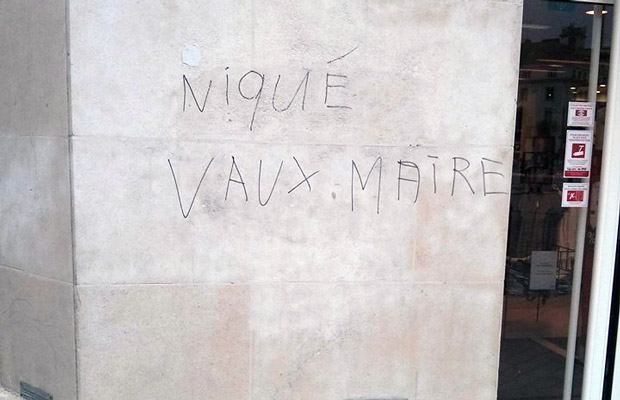 NiQUÉ
VAUX MAÏRE